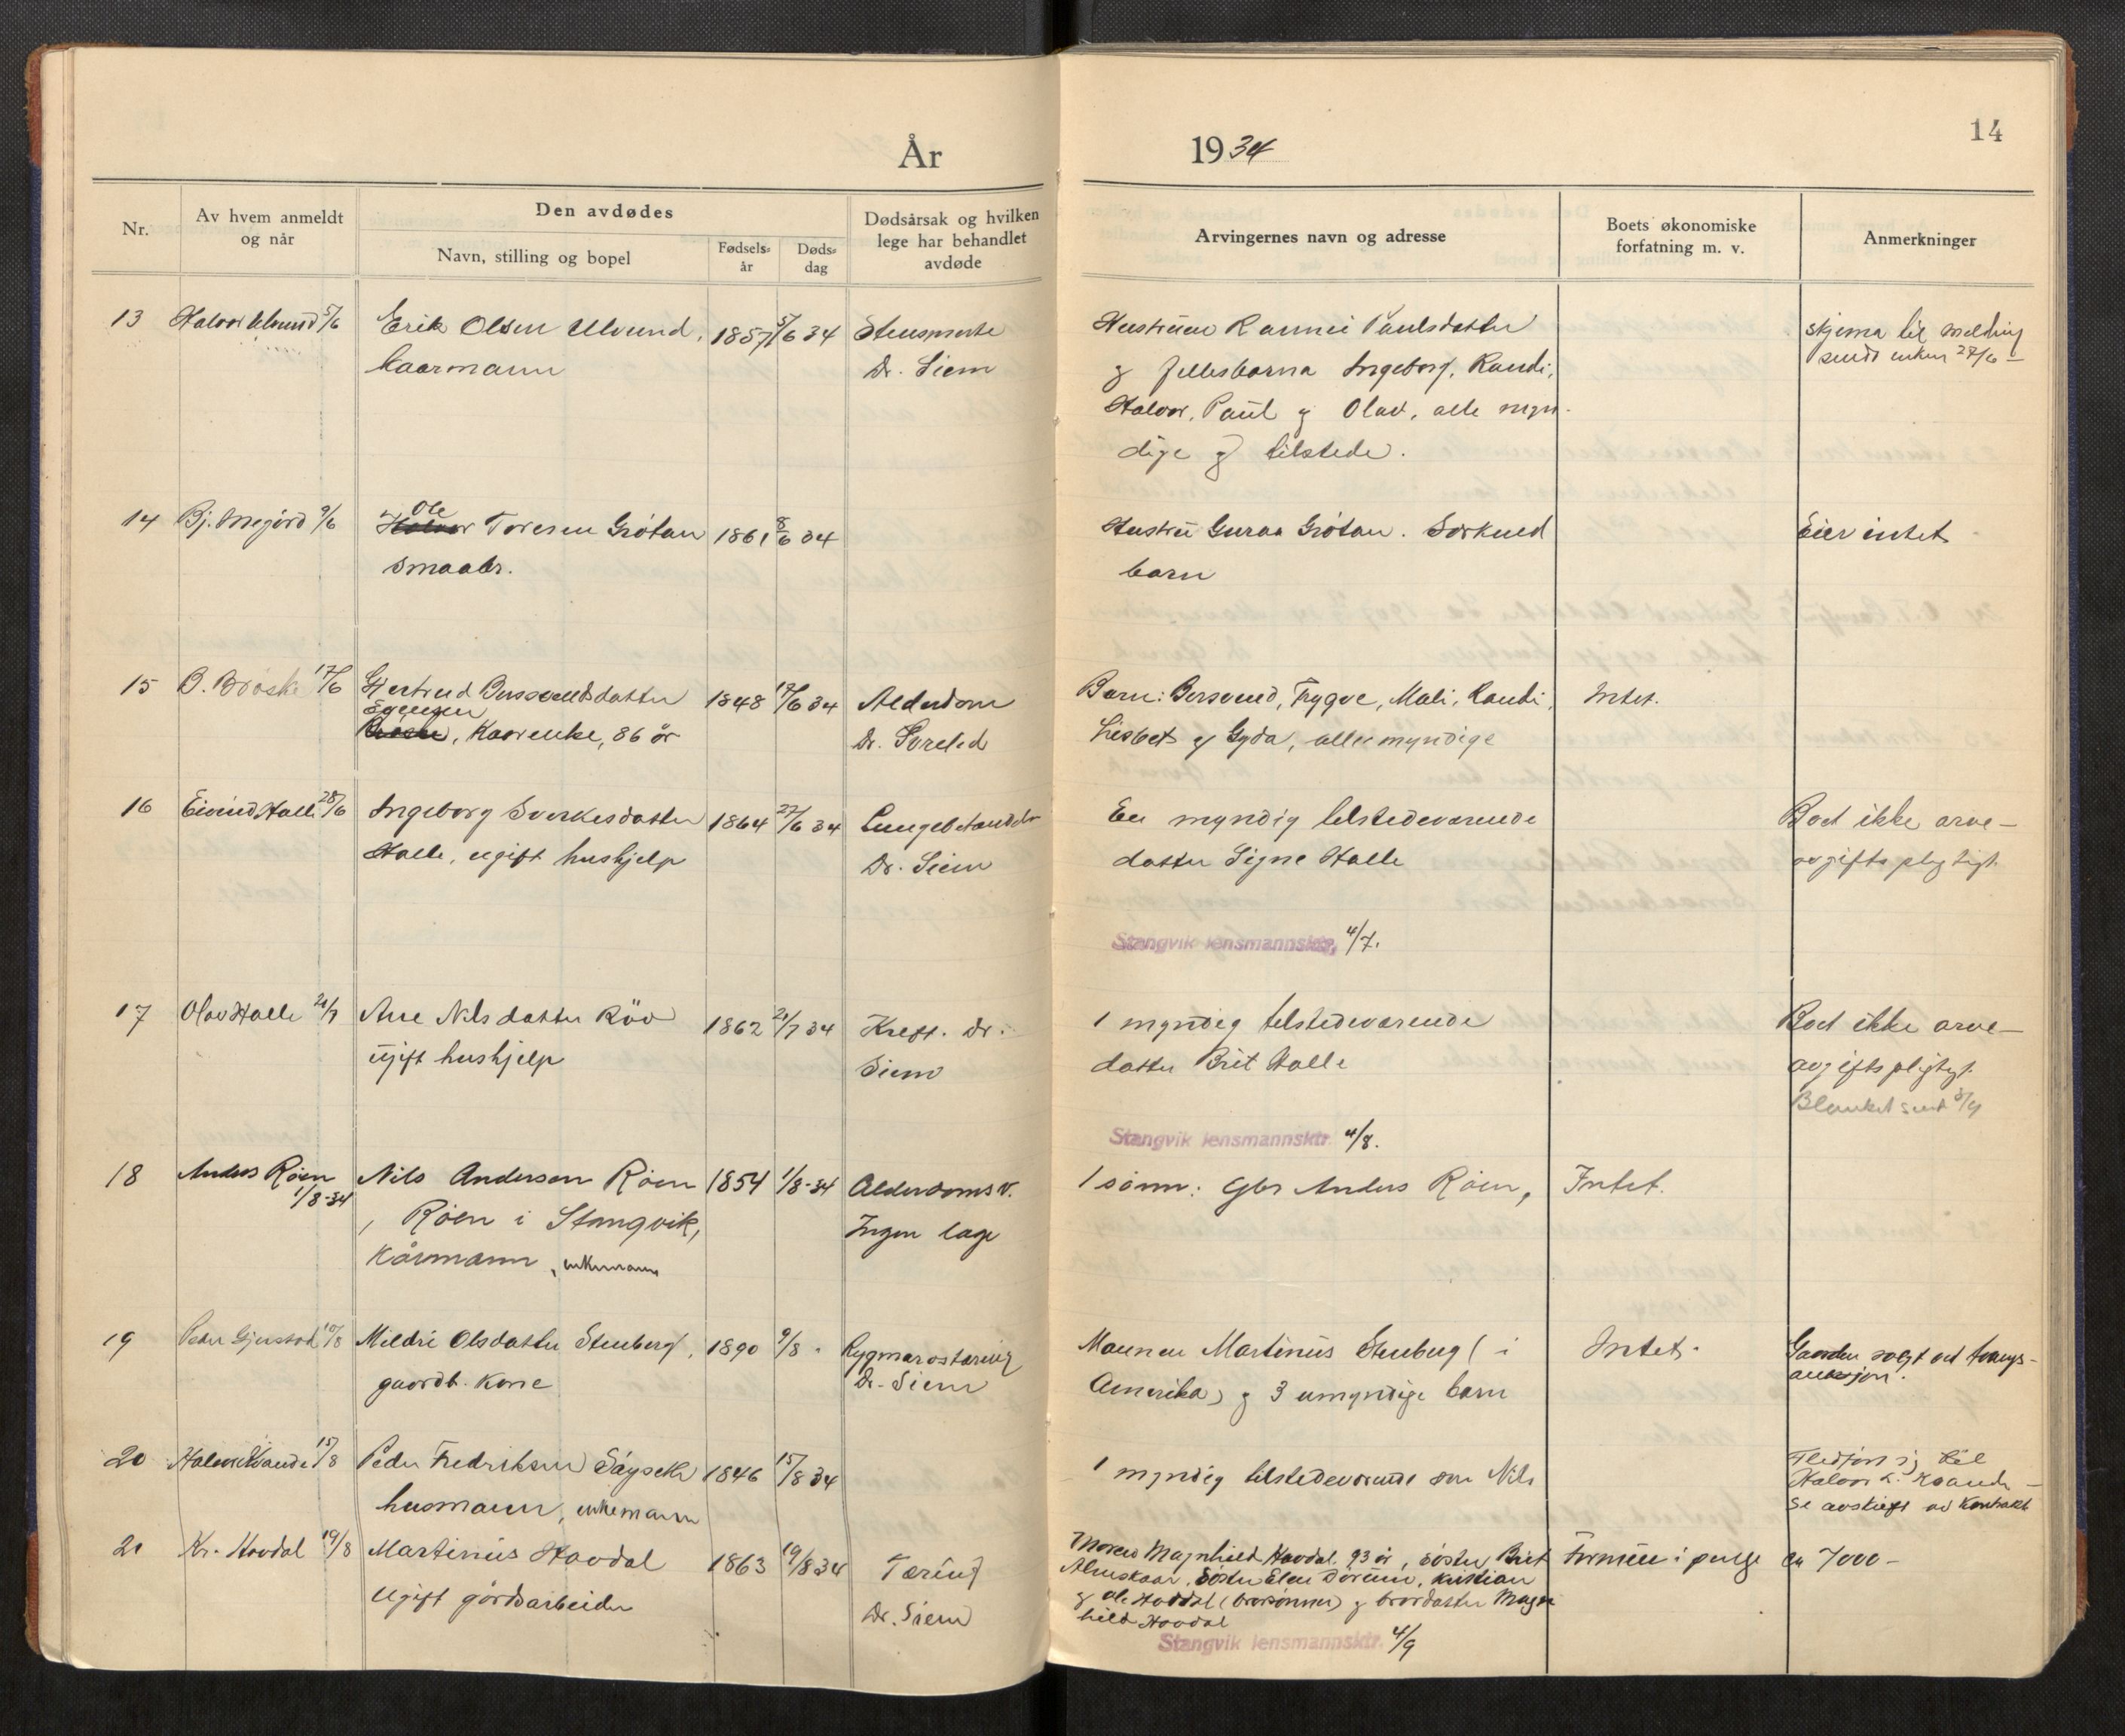 År 1934
14
Nr.
Av hvem anmeldt og når
Den avdødes
Navn, stilling og bopel
Fødsels-år
Døds-dag
Dødsårsak og hvilken lege har behandlet avdøde
Arvingernes navn og adresse
Boets økonomiske forfatning m. v.
Anmerkninger
13 Halvor Ulvund 5/6 Erik Olsen Ulvund, 1857 5/6 34
kaarmann Dr. Siem
Hustruen Rannei Paulsdatter
g fellesbarna Ingeborg, Randi,
Halvor, Paul g Olav, alle myn-
dige g tilstede.
skjema til melding
sendt enken 27/6
14 Bj. Megård 9/6 Ole
Halvor Toresen Grötan 1861 8/6 34
smaabr.
Hustru Guraa Grötan. Særkuld
barn
Eier intet
15 B. Bröske 17/6 Gjertrud 1848 17/6 34 Alderdom
Kaarenke, 86 år Dr.
Barn: Bersvend, Trygve, Mali, Randi,
Lisbet g Gyda, alle myndige
Intet.
16 Eivind Halle 28/6 Ingeborg Sverkesdatter 1864 27/6 34 Lungebetændelse
Halle, ugift hushjelp Dr. Siem
En myndig tilstedeværende
datter Signe Halle
Boet ikke arve-
avgiftspligtigt
Stangvik lensmannsktr, 4/7.
17 Olav Halle 21/7 Ane Nilsdatter Röv 1862 21/7 34 Kreft. Dr.
ugift hushjelp Siem
1 myndig tilstedeværende
datter Brit Halle
Boet ikke arve-
avgiftspligtigt.
Blanket sent 3/9
Stangvik lensmannsktr 4/8.
18 Anders Röen
1/8-34
Nils Andersen Röen 1854 1/8-34 Alderdomsv.
, Röen i Stangvik, Ingen læge
Kårmann, enkemann
1 sönn: Gbr Anders Röen,
Intet.
19 Peder Gjerstad 10/8 Mildri Olsdatter Stenberg, 1890 9/8 Rygmarvstæring
gaardb. kone Dr. Siem
Mannen Martinus Stenberg (i
Amerika) g 3 umyndige barn
Intet.
Gaarden solgt ved tvangs-
auksjon.
20 Halvor Kvande 15/8 Peder Fredriksen 1846 15/8 34
husmann, enkemann
1 myndig tilstedeværende søn Nils
til
Halvor L. Kvande -
Se avskrift av Kontrakt
21 Kr. Hovdal 19/8 Martinus Hovdal 1863 19/8 34 Tæring
Ugift gårdsarbeider Dr. Siem
Moren Magnhild Hovdal 93 år, söster Brit
Almskaar, söster Elen, Kristian
g Ole Hovdal (brorsønner) g brordatter Magn
hild Hovdal
Formue i penge ca 7000 -
Stangvik lensmannsktr. 4/9